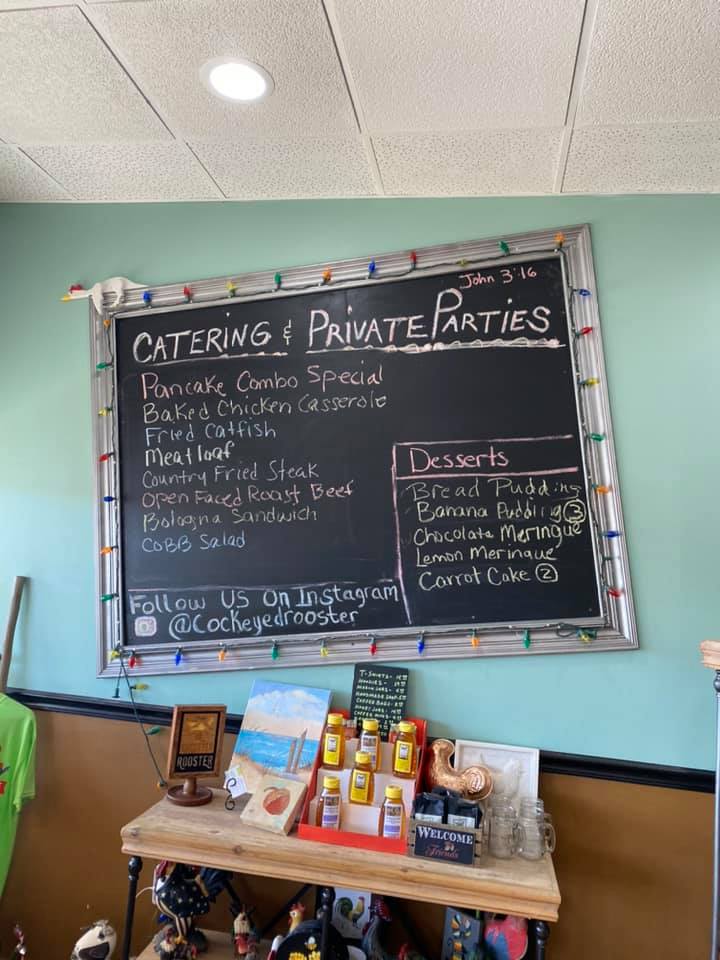 John 3:16
CATERING & PRIVATE PARTIES
Pancake Combo Special
Baked Chicken Casserole
Fried Catfish
Meatloaf
Country Fried Steak
Open Faced Roast Beef
Bologna Sandwich
COBB Salad
Desserts
Bread Pudding
Banana Pudding 3
Chocolate Meringue
Lemon Meringue
Carrot Cake 2
Follow US On Instagram
@Cockeyedrooster
T-SHIRTS-
HOODIES-
MASON JARS-
HANDMADE SOAP-
COFFEE BAGS-
HONEY JARS-
COFFEE MUGS-
ROOSTER
WELCOME
Friends